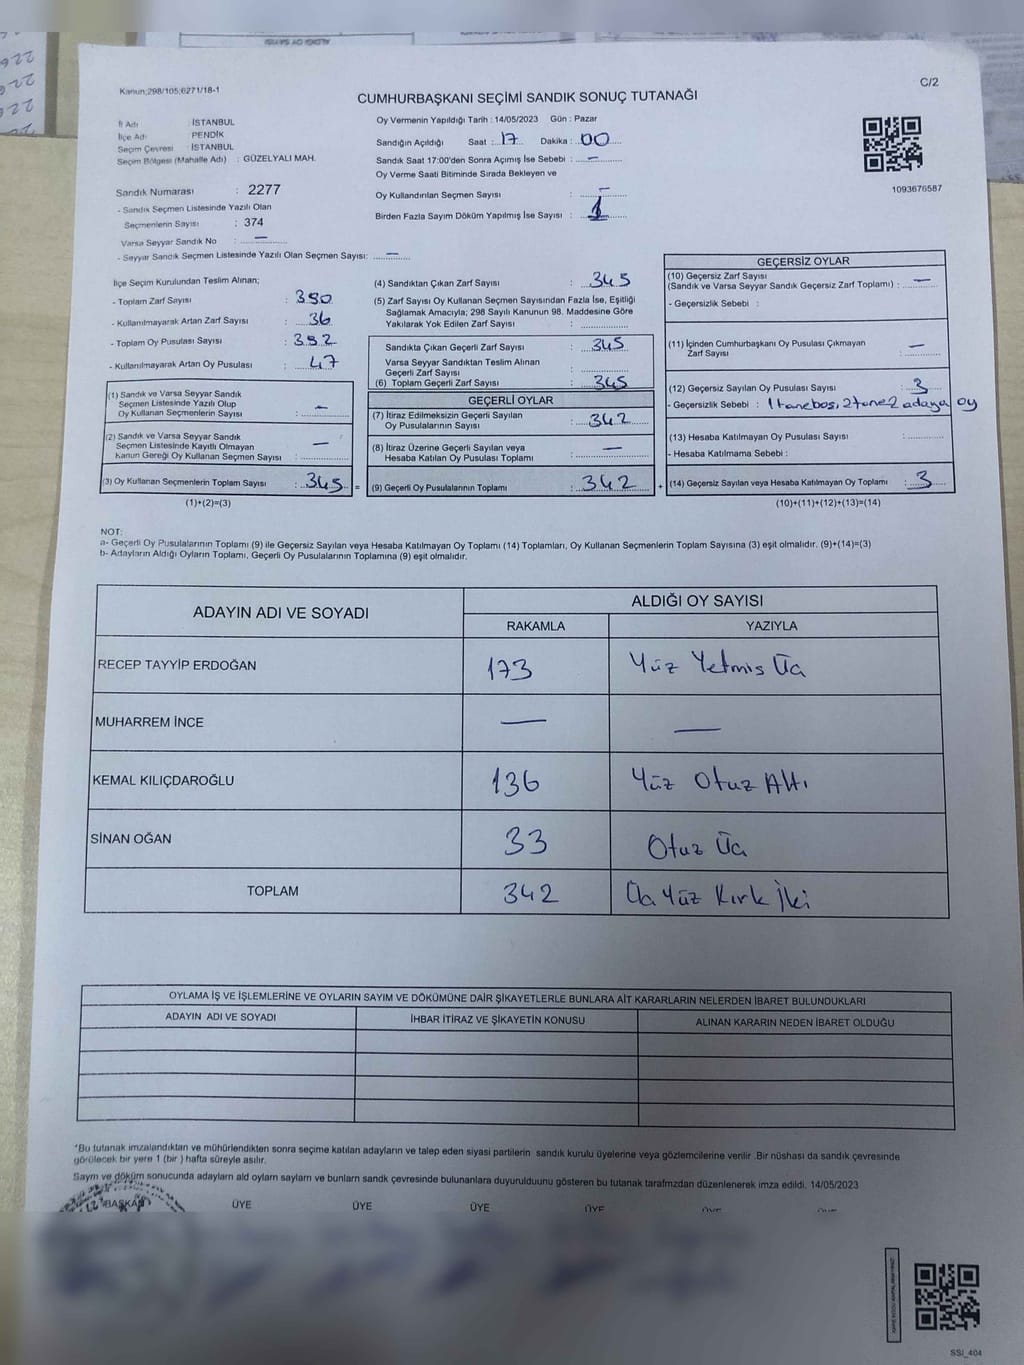 Kanun;298/105;6271/18-1
C/2
CUMHURBAŞKANI SEÇİMİ SANDIK SONUÇ TUTANAĞI
İl Adı : İSTANBUL
İlçe Adı : PENDİK
Seçim Çevresi : İSTANBUL
Seçim Bölgesi (Mahalle Adı) : GÜZELYALI MAH.
Sandık Numarası : 2277
- Sandık Seçmen Listesinde Yazılı Olan
Seçmenlerin Sayısı : 374
Varsa Seyyar Sandık No : —
- Seyyar Sandık Seçmen Listesinde Yazılı Olan Seçmen Sayısı: —
Oy Vermenin Yapıldığı Tarih : 14/05/2023 Gün : Pazar
Sandığın Açıldığı Saat : 17 Dakika : 00
Sandık Saat 17:00'den Sonra Açımış İse Sebebi : —
Oy Verme Saati Bitiminde Sırada Bekleyen ve
Oy Kullandırılan Seçmen Sayısı : —
Birden Fazla Sayım Döküm Yapılmış İse Sayısı : 1
1093676587
İlçe Seçim Kurulundan Teslim Alınan;
- Toplam Zarf Sayısı : 380
- Kullanılmayarak Artan Zarf Sayısı : 36
- Toplam Oy Pusulası Sayısı : 392
- Kullanılmayarak Artan Oy Pusulası : 47
(1) Sandık ve Varsa Seyyar Sandık
Seçmen Listesinde Yazılı Olup
Oy Kullanan Seçmenlerin Sayısı : —
(2) Sandık ve Varsa Seyyar Sandık
Seçmen Listesinde Kayıtlı Olmayan
Kanun Gereği Oy Kullanan Seçmen Sayısı : —
(3) Oy Kullanan Seçmenlerin Toplam Sayısı : 345 =
(1)+(2)=(3)
(4) Sandıktan Çıkan Zarf Sayısı : 345
(5) Zarf Sayısı Oy Kullanan Seçmen Sayısından Fazla İse, Eşitliği
Sağlamak Amacıyla; 298 Sayılı Kanunun 98. Maddesine Göre
Yakılarak Yok Edilen Zarf Sayısı :
Sandıkta Çıkan Geçerli Zarf Sayısı : 345
Varsa Seyyar Sandıktan Teslim Alınan
Geçerli Zarf Sayısı :
(6) Toplam Geçerli Zarf Sayısı : 345
GEÇERLİ OYLAR
(7) İtiraz Edilmeksizin Geçerli Sayılan
Oy Pusulalarının Sayısı : 342
(8) İtiraz Üzerine Geçerli Sayılan veya
Hesaba Katılan Oy Pusulası Toplamı : —
(9) Geçerli Oy Pusulalarının Toplamı : 342 +
GEÇERSİZ OYLAR
(10) Geçersiz Zarf Sayısı
(Sandık ve Varsa Seyyar Sandık Geçersiz Zarf Toplamı) : —
- Geçersizlik Sebebi :
(11) İçinden Cumhurbaşkanı Oy Pusulası Çıkmayan
Zarf Sayısı : —
(12) Geçersiz Sayılan Oy Pusulası Sayısı : 3
- Geçersizlik Sebebi : 1 tane boş, 2 tane 2 adaya oy
(13) Hesaba Katılmayan Oy Pusulası Sayısı :
- Hesaba Katılmama Sebebi :
(14) Geçersiz Sayılan veya Hesaba Katılmayan Oy Toplamı : 3
(10)+(11)+(12)+(13)=(14)
NOT:
a- Geçerli Oy Pusulalarının Toplamı (9) ile Geçersiz Sayılan veya Hesaba Katılmayan Oy Toplamı (14) Toplamları, Oy Kullanan Seçmenlerin Toplam Sayısına (3) eşit olmalıdır. (9)+(14)=(3)
b- Adayların Aldığı Oyların Toplamı, Geçerli Oy Pusulalarının Toplamına (9) eşit olmalıdır.
ADAYIN ADI VE SOYADI ALDIĞI OY SAYISI
RAKAMLA YAZIYLA
RECEP TAYYİP ERDOĞAN 173 Yüz Yetmis Üç
MUHARREM İNCE — —
KEMAL KILIÇDAROĞLU 136 Yüz Otuz Altı
SİNAN OĞAN 33 Otuz Üç
TOPLAM 342 Üç Yüz Kırk İki
OYLAMA İŞ VE İŞLEMLERİNE VE OYLARIN SAYIM VE DÖKÜMÜNE DAİR ŞİKAYETLERLE BUNLARA AİT KARARLARIN NELERDEN İBARET BULUNDUKLARI
ADAYIN ADI VE SOYADI İHBAR İTİRAZ VE ŞİKAYETİN KONUSU ALINAN KARARIN NEDEN İBARET OLDUĞU
*Bu tutanak imzalandıktan ve mühürlendikten sonra seçime katılan adayların ve talep eden siyasi partilerin sandık kurulu üyelerine veya gözlemcilerine verilir .Bir nüshası da sandık çevresinde
görülecek bir yere 1 (bir ) hafta süreyle asılır.
Sayım ve döküm sonucunda adayların ald oyların sayıların ve bunların sandk çevresinde bulunanlara duyurulduunu gösteren bu tutanak tarafmzdan düzenlenerek imza edildi. 14/05/2023
BAŞKAN ÜYE ÜYE ÜYE ÜYE ÜYE ÜYE
SSI_404